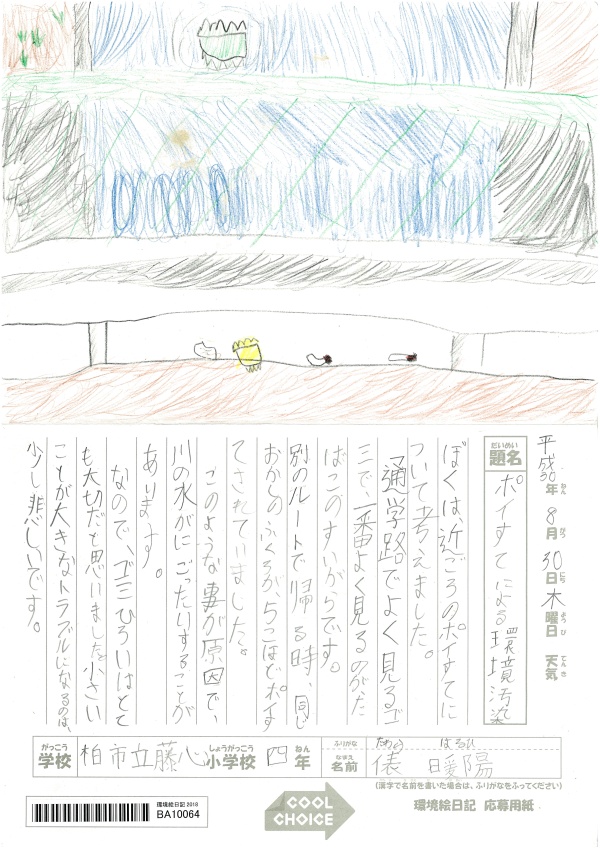 平成30年ねん8月がつ30日にち木曜日ようび 天気てんき
題名だいめい ポイすてによる環境汚染
ぼくは近ごろのポイすてに
ついて考えました。
通学路でよく見るゴ
ミで、一番よく見るのがた
ばこのすいがらです。
別のルートで帰る時、同じ
おかしのふくろが、5こほどポイす
てされていました。
このような事が原因で、
川の水がにごったりすることが
あります。
なので、ゴミひろいはとて
も大切だと思いました。小さい
ことが大きなトラブルになるのは、
少し悲しいです。
がっこう しょうがっこう ねん
学校 柏市立藤心小学校 四年
ふりがな たわら はるひ
なまえ
名前 俵 暖陽
(漢字で名前を書いた場合は、ふりがなをふってください)
環境絵日記 2018
BA10064
COOL
CHOICE
環境絵日記 応募用紙